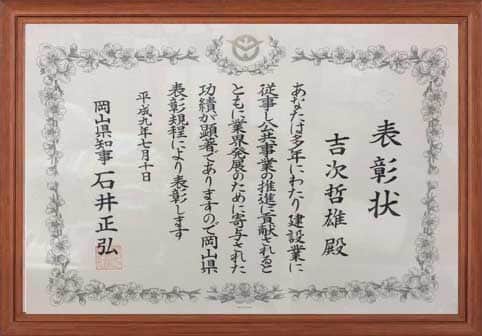 表彰状
吉次哲雄 殿
あなたは多年にわたり建設業に
従事し公共事業の推進に貢献されると
ともに業界発展のために寄与された
功績が顕著でありますので岡山県
表彰規程により表彰します
平成九年七月十日
岡山県知事 石井正弘